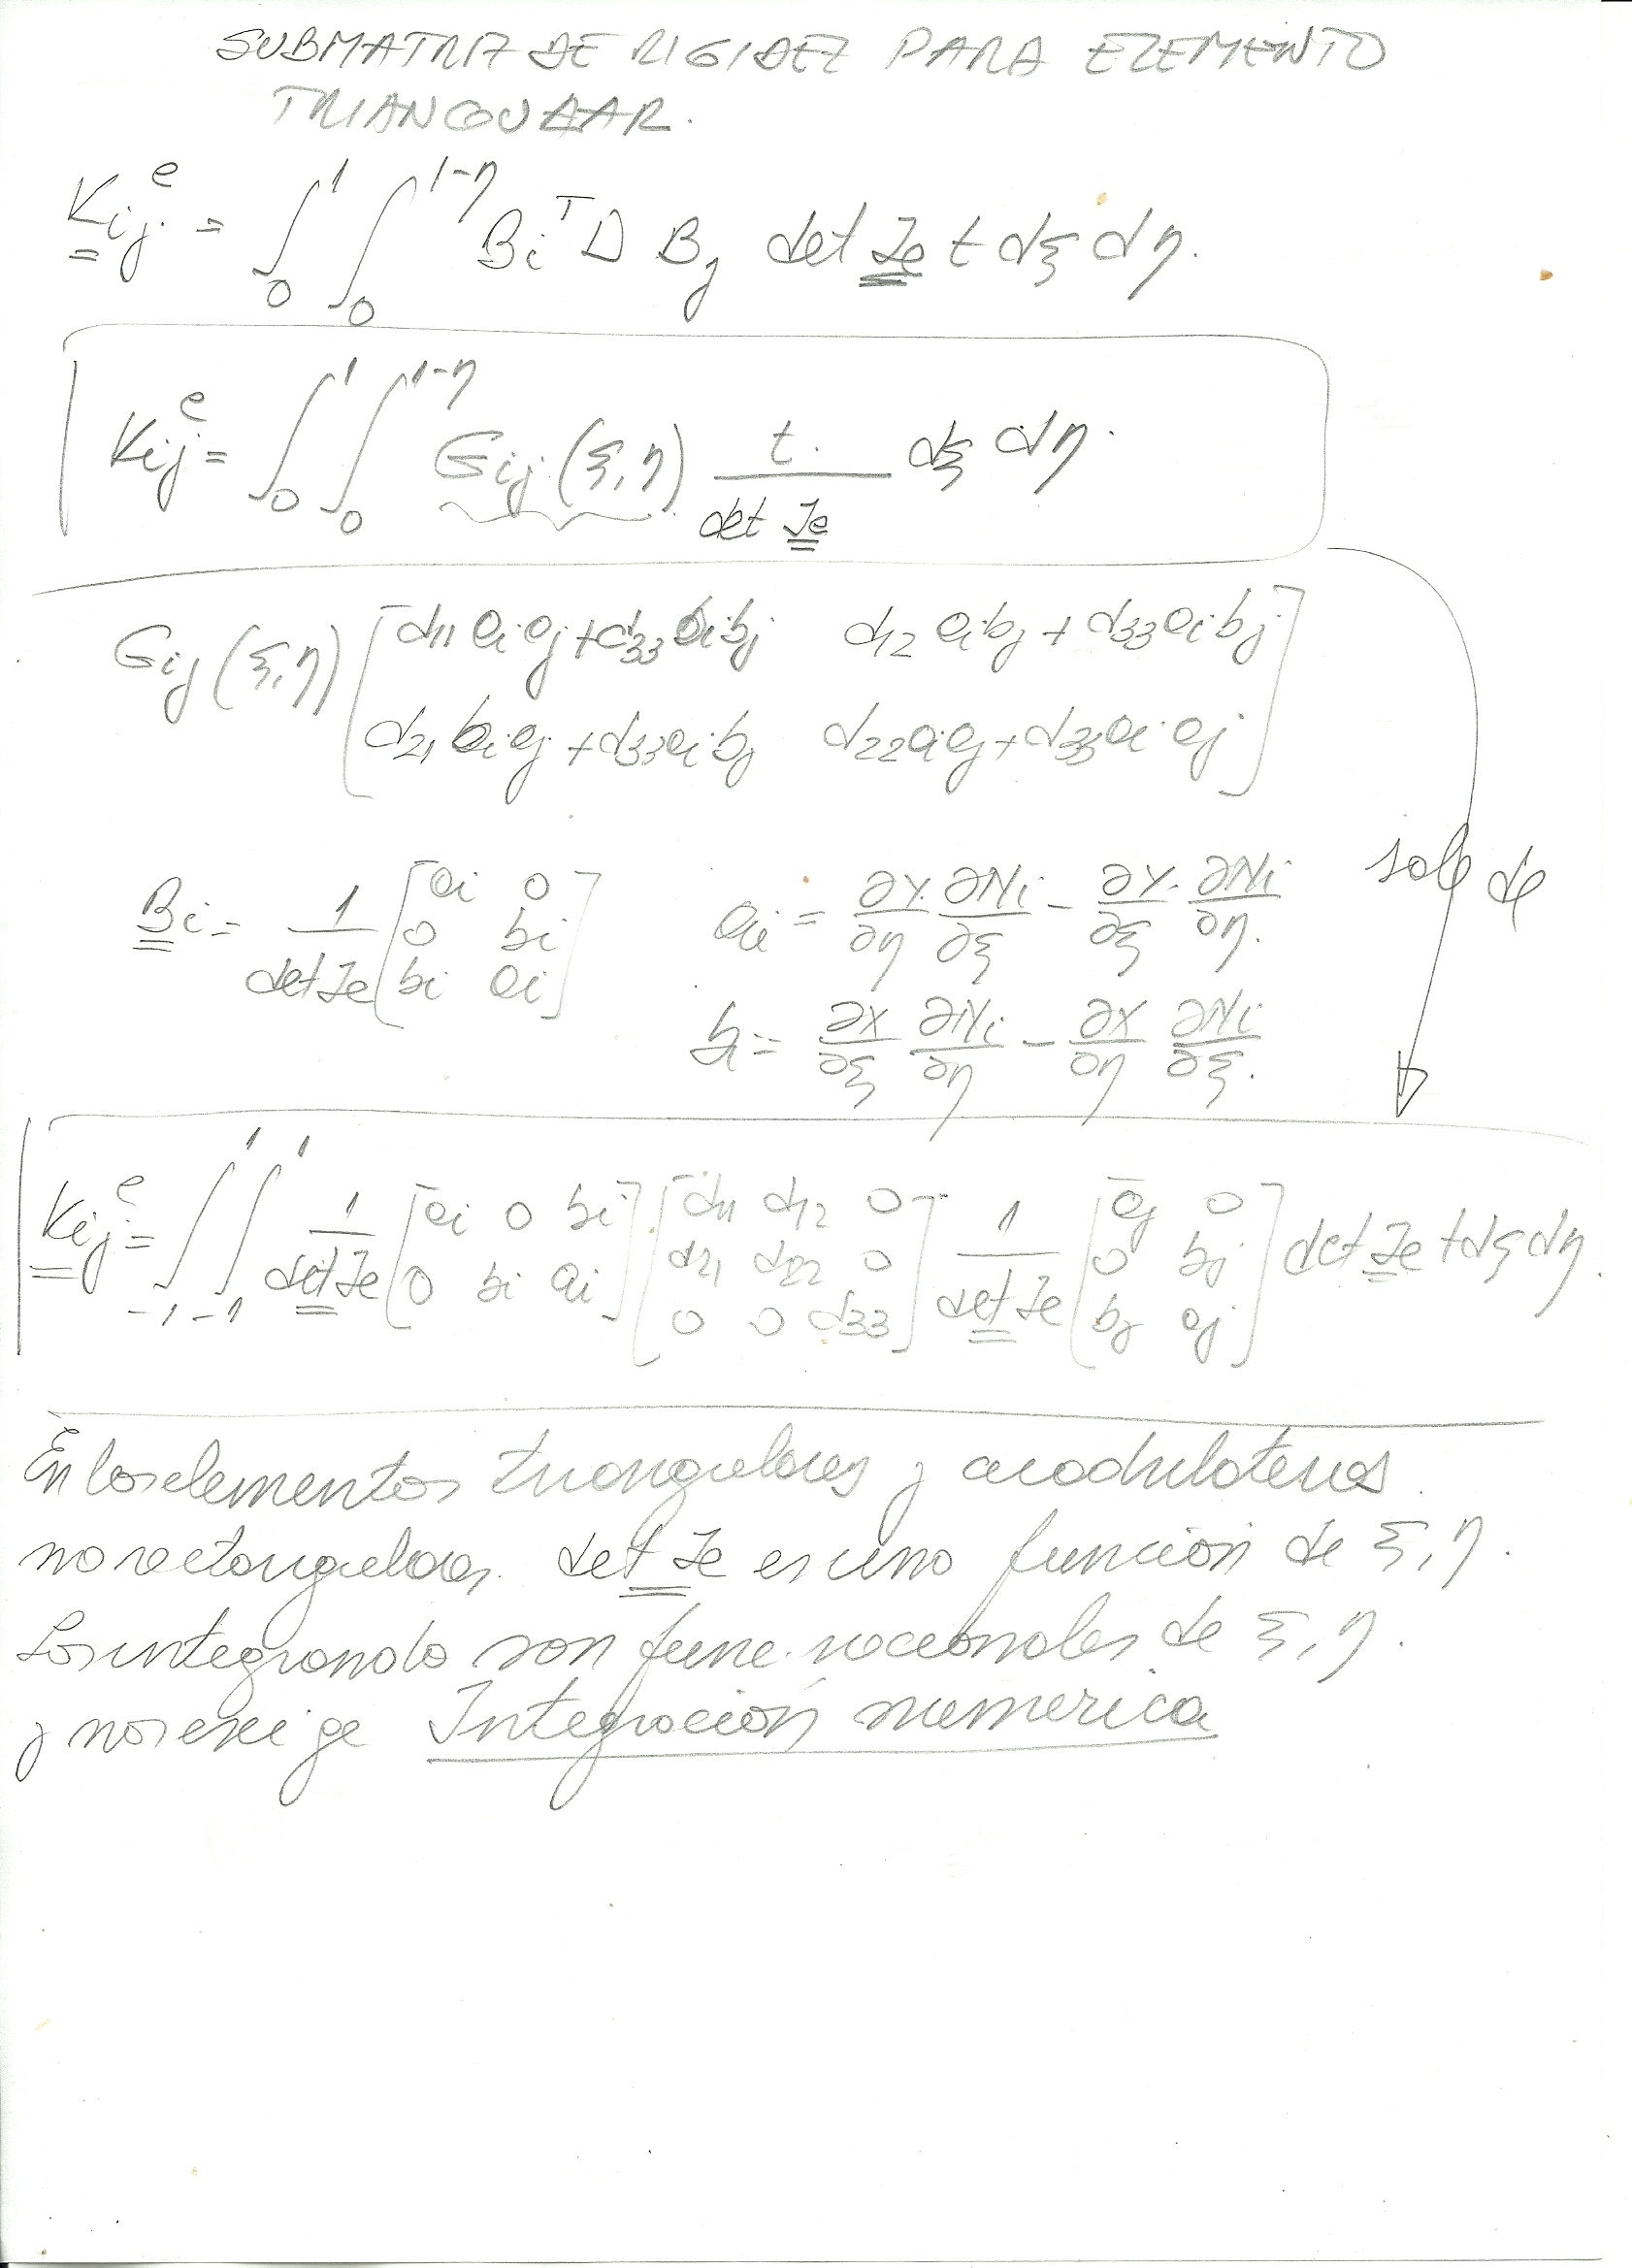 SUBMATRIZ DE RIGIDEZ PARA ELEMENTO
TRIANGULAR.
K_ij^e = ∫_0^1 ∫_0^{1-η} B_i^T D B_j det J_e t dξ dη.
K_ij^e = ∫_0^1 ∫_0^{1-η} G_ij (ξ,η) t/(det J_e) dξ dη.
G_ij (ξ,η) [d11 ai aj + d33 bi bj   d12 ai bj + d33 ai bj
d21 bi aj + d33 ai bj   d22 ai aj + d33 ai aj]
B_i = 1/(det J_e) [ai 0; 0 bi; bi ai]   ai = ∂y/∂η ∂Ni/∂ξ - ∂y/∂ξ ∂Ni/∂η.   sale de
bi = ∂x/∂ξ ∂Ni/∂η - ∂x/∂η ∂Ni/∂ξ.
K_ij^e = ∫_{-1}^1 ∫_{-1}^1 1/(det J_e) [ai 0 bi; 0 bi ai] [d11 d12 0; d21 d22 0; 0 0 d33] 1/(det J_e) [aj 0; 0 bj; bj aj] det J_e t dξ dη.
En los elementos triangulares y cuadrilateros
no rectangulares. det J_e es una función de ξ,η.
Los integrando son func. racionales de ξ,η.
y nos exige Integración numerica